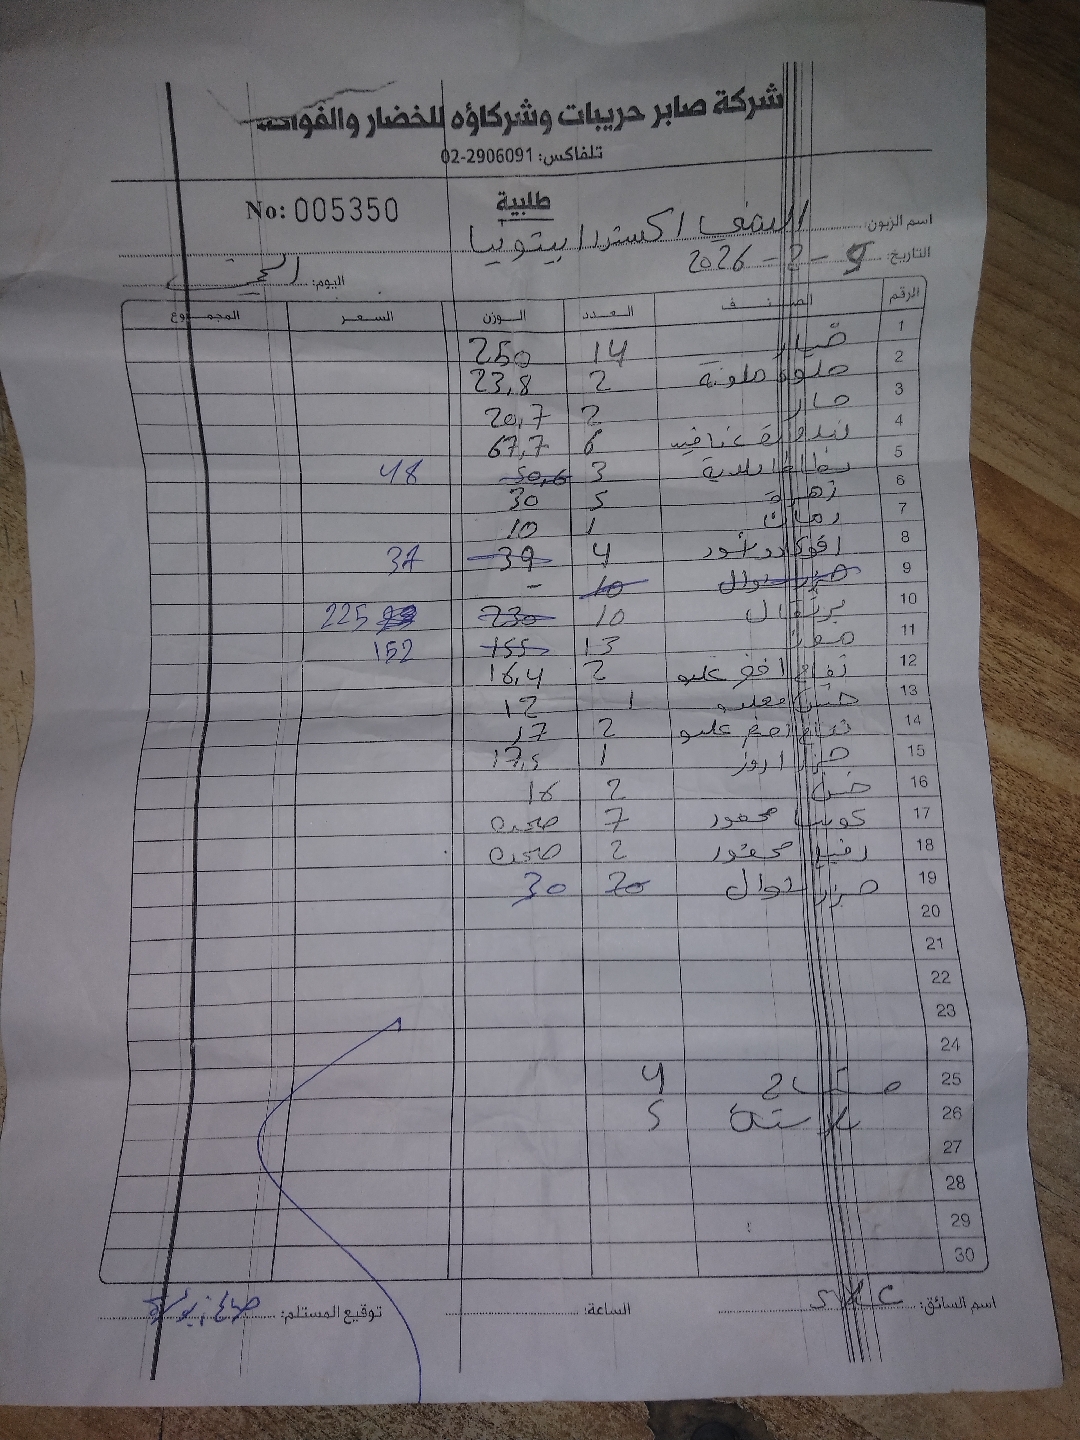 شركة صابر حريبات وشركاؤه للخضار والفواكه
تلفاكس: 02-2906091
طلبية
No: 005350
اسم الزبون: اكسترا بيتونيا
التاريخ: 5-2-2026
اليوم:
الرقم الصنف العدد الوزن السعر المجموع
1 خيار 14 250
2 حلوة ملونة 2 23,8
3 حار 2 20,7
4 بندورة عناقيد 6 67,7
5 بطاطا بلدية 3 50,6 48
6 زهرة 5 30
7 رمان 1 10
8 افوكادو 4 39 37
9 جزر شوال 10 -
10 برتقال 10 230 225
11 موز 13 155 152
12 تفاح اخضر عليو 2 16,4
13 1 12
14 تفاح عليو 2 17
15 1 17,5
16 خس 2 16
17 كوسا محفور 7 صحن
18 محفور 2 صحن
19 جزر شوال 20 30
20
21
22
23
24
25 4
26 بلاستك 5
27
28
29
30
اسم السائق:
الساعة:
توقيع المستلم: